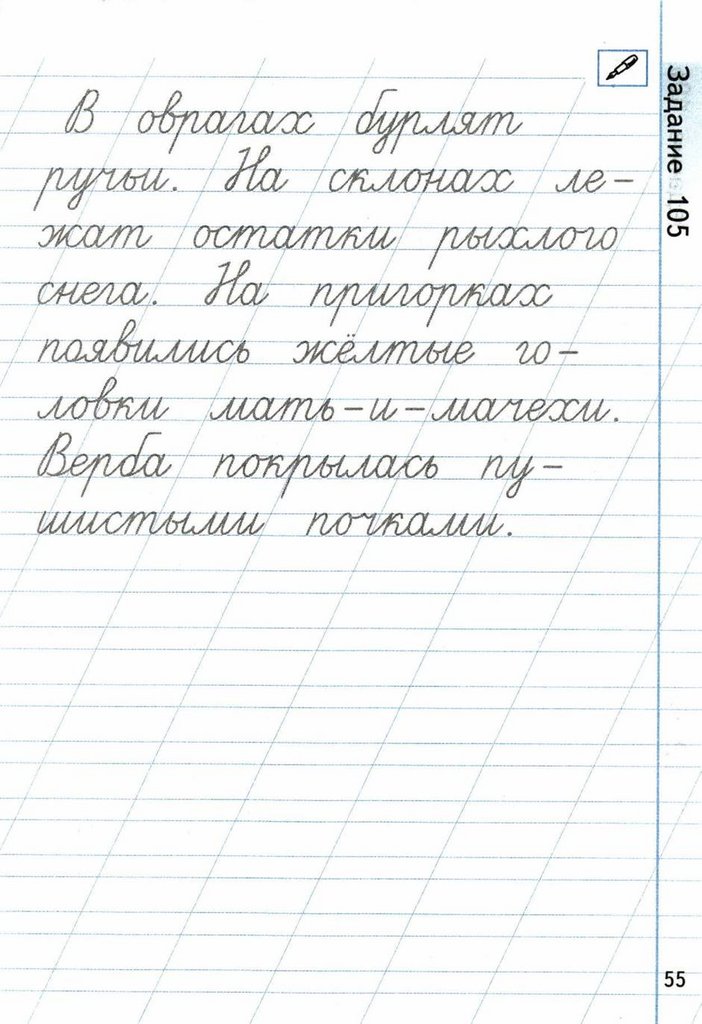 В оврагах бурлят
ручьи. На склонах ле-
жат остатки рыхлого
снега. На пригорках
появились жёлтые го-
ловки мать-и-мачехи.
Верба покрылась пу-
шистыми почками.
Задание 105
55